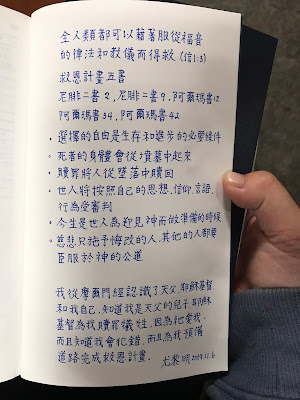 全人類都可以藉著服從福音
的律法和教儀而得救（信1:3）
救恩計畫五書
尼腓二書2，尼腓二書9，阿爾瑪書12
阿爾瑪書34，阿爾瑪書42
・選擇的自由是生存和進步的必要條件
・死者的身體會從墳墓中起來
・贖罪將人從墜落中贖回
・世人將按照自己的思想、信仰、言語、
行為受審判
・今生是世人為迎見神而做準備的時候
・慈悲只施予悔改的人，其他的人都要
臣服於神的公道
我從摩爾門經認識了天父、耶穌基督
和我自己，知道我是天父的兒子，耶穌
基督為我贖罪犧牲，因為祂愛我，
而且知道我會犯錯，而且為我預備
道路完成救恩計畫。 尤榮 2019.11.6